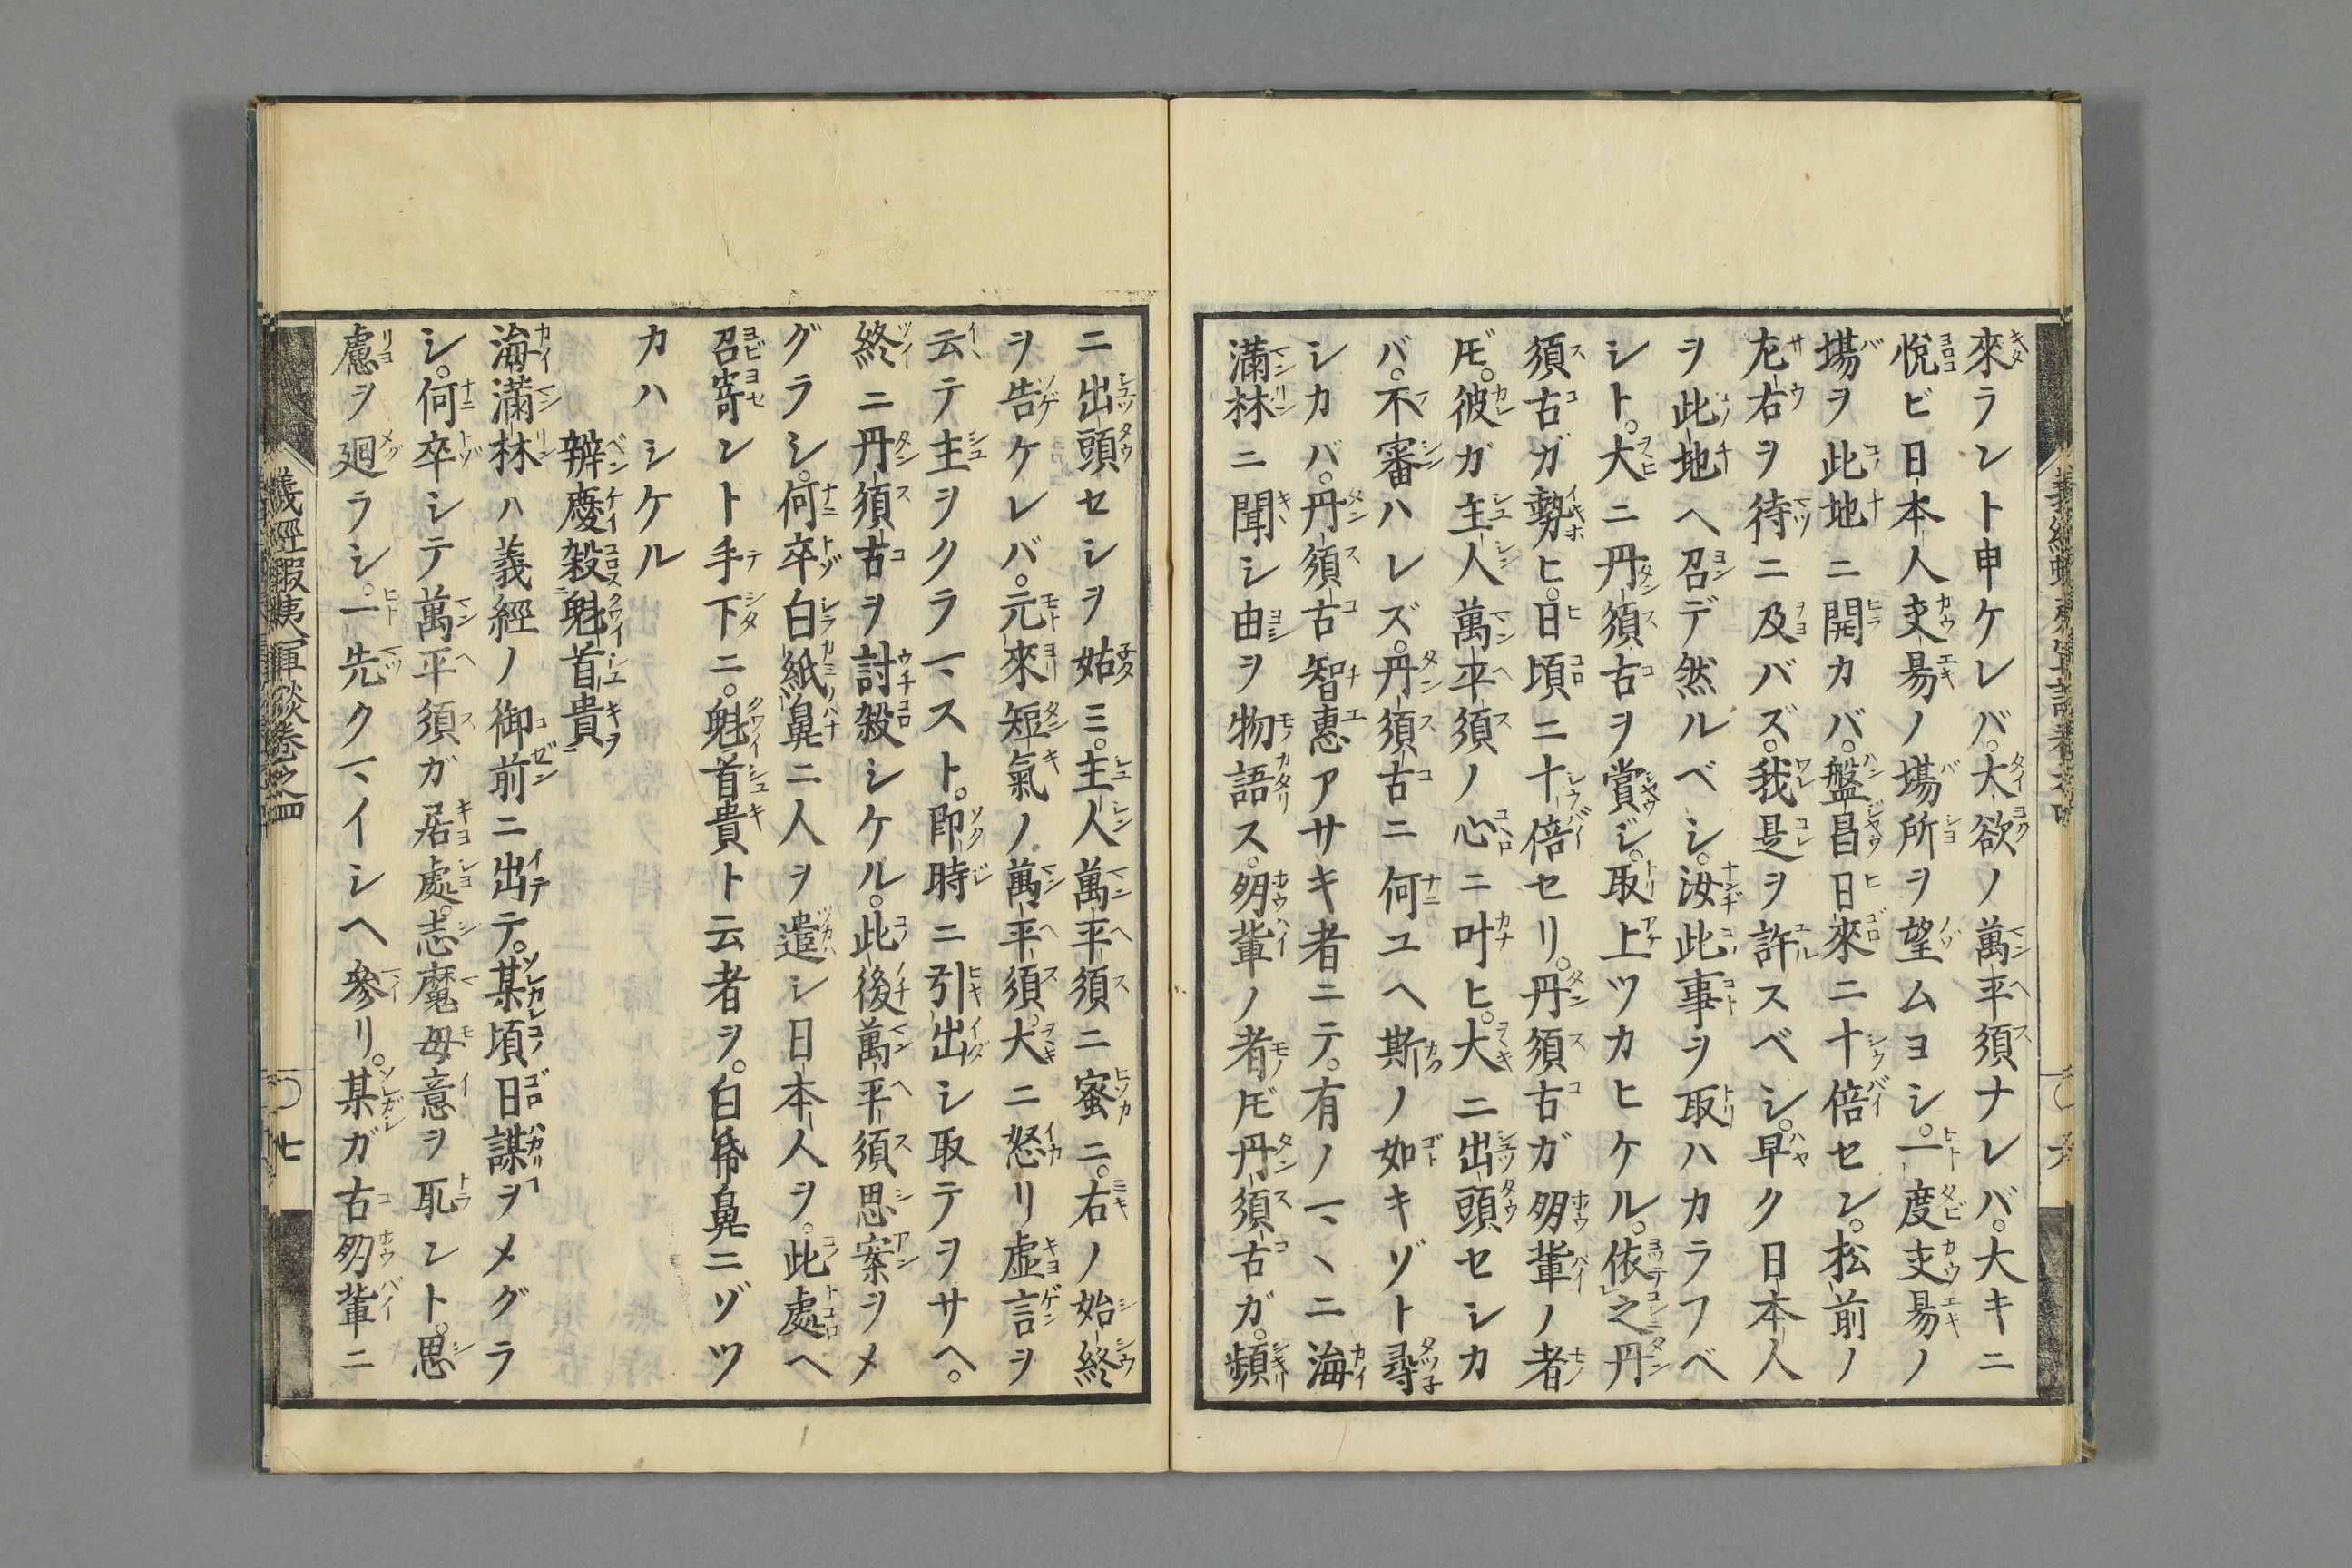 來ラント申ケレバ。大欲ノ萬平須ナレバ。大キニ
悅ビ日本人支易ノ塲所ヲ望ムヨシ。一度支易ノ
塲ヲ此地ニ開カバ。盤昌日來ニ十倍セン。松前ノ
尢右ヲ待ニ及バズ。我是ヲ許スベシ。早ク日本人
ヲ此地ヘ召デ然ルベシ。汝此事ヲ取ハカラフベ
シト。大ニ丹須古ヲ賞ジ。取上ツカヒケル。依之丹
須古ガ勢ヒ。日頃ニ十倍セリ。丹須古ガ朋輩ノ者
ドモ。彼ガ主人萬平須ノ心ニ叶ヒ。大ニ出頭セシカ
バ。不審ハレズ。丹須古ニ何ユヘ斯ノ如キゾト尋
シカバ。丹須古智惠アサキ者ニテ。有ノマヽニ海
滿林ニ聞シ由ヲ物語ス。朋輩ノ者ドモ丹須古ガ。頻
ニ出頭セシヲ姑ミ。主人萬平須ニ蜜ニ。右ノ始終
ヲ告ケレバ。元來短氣ノ萬平須。大ニ怒リ虛言ヲ
云テ主ヲクラマスト。卽時ニ引出シ取テヲサヘ。
終ニ丹須古ヲ討殺シケル。此後萬平須思案ヲメ
グラシ。何卒白紙鼻ニ人ヲ遣シ日本人ヲ。此處ヘ
召寄ント手下ニ。魁首貴ト云者ヲ。白帋鼻ニゾツ
カハシケル
辨慶殺魁首貴
海滿林ハ義經ノ御前ニ出テ。某頃日謀ヲメグラ
シ。何卒シテ萬平須ガ居處。志魔毋意ヲ取ント。思
慮ヲ廻ラシ。一先クマイシヘ參リ。某ガ古朋輩ニ
義經蝦夷軍談卷之四
七